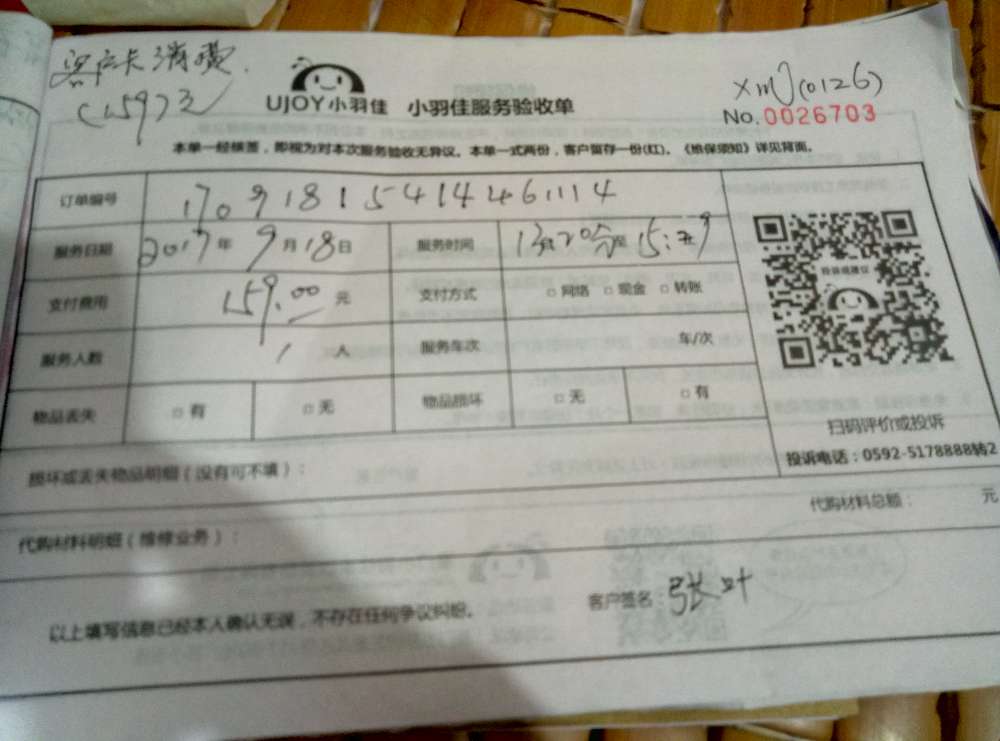 客户卡消费.
(159)元
UJOY小羽佳 小羽佳服务验收单
XMJ(0126)
No.0026703
本单一经核签，即视为对本次服务验收无异议。本单一式两份，客户留存一份(红)。《维保须知》详见背面。
订单编号 170918154144461114
服务日期 2017年9月18日 服务时间 13:20分至15:
支付费用 159.00元 支付方式 □ 网络 □ 现金 □ 转账
服务人数 1 人 服务车次 车/次
物品丢失 □ 有 □ 无 物品损坏 □ 无 □ 有
投诉或建议
扫码评价或投诉
投诉电话：0592-5178888转2
损坏或丢失物品明细（没有可不填）：
代购材料总额： 元
代购材料明细（维修业务）：
以上填写信息已经本人确认无误，不存在任何争议纠纷。 客户签名：张叶